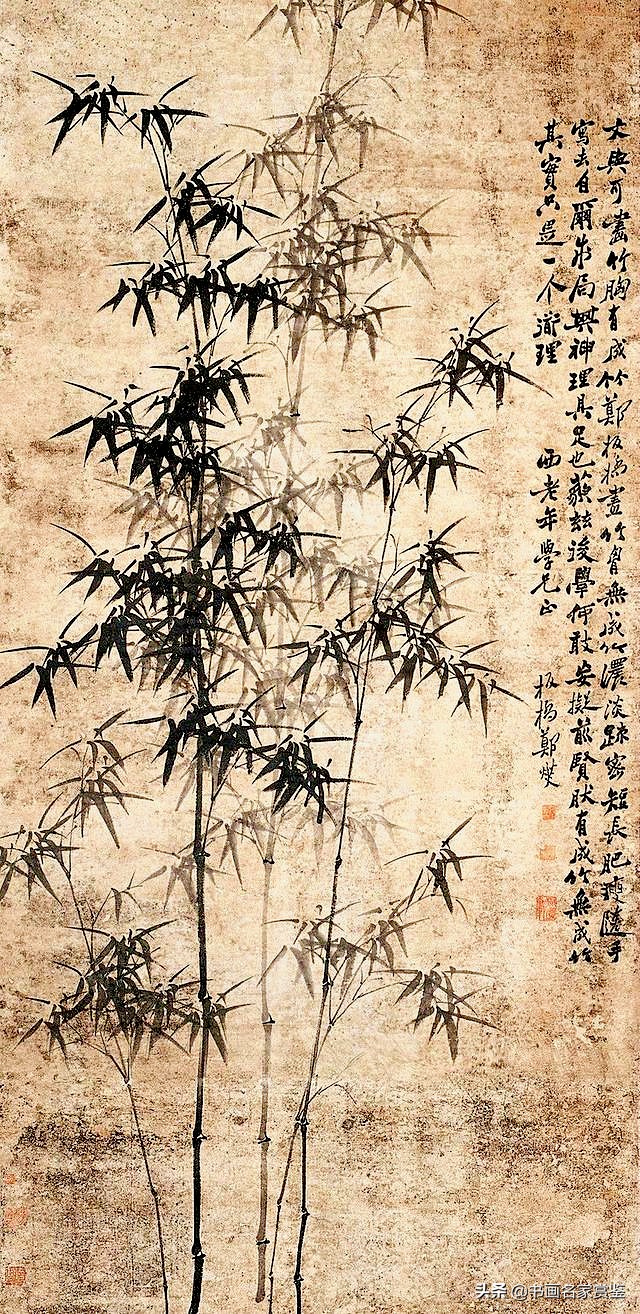 文與可畫竹胸有成竹鄭板橋畫竹胸無成竹濃淡疎密短長肥瘦隨手
寫去自爾成局其神理具足也藐茲後學何敢妄擬前賢然有成竹無成竹
其實只是一个道理
西老年學兄正
板橋鄭燮
头条 @书画名家赏鉴